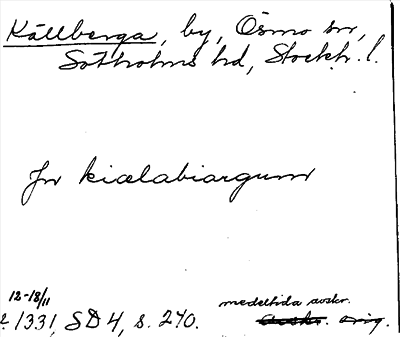 Källberga, by, Ösmo sn,
Sotholms hd, Stockh. l.
Jn kiælabiargum
12-18/11
1331, SD 4, s. 270.
medeltida avskr.
avskr. orig.